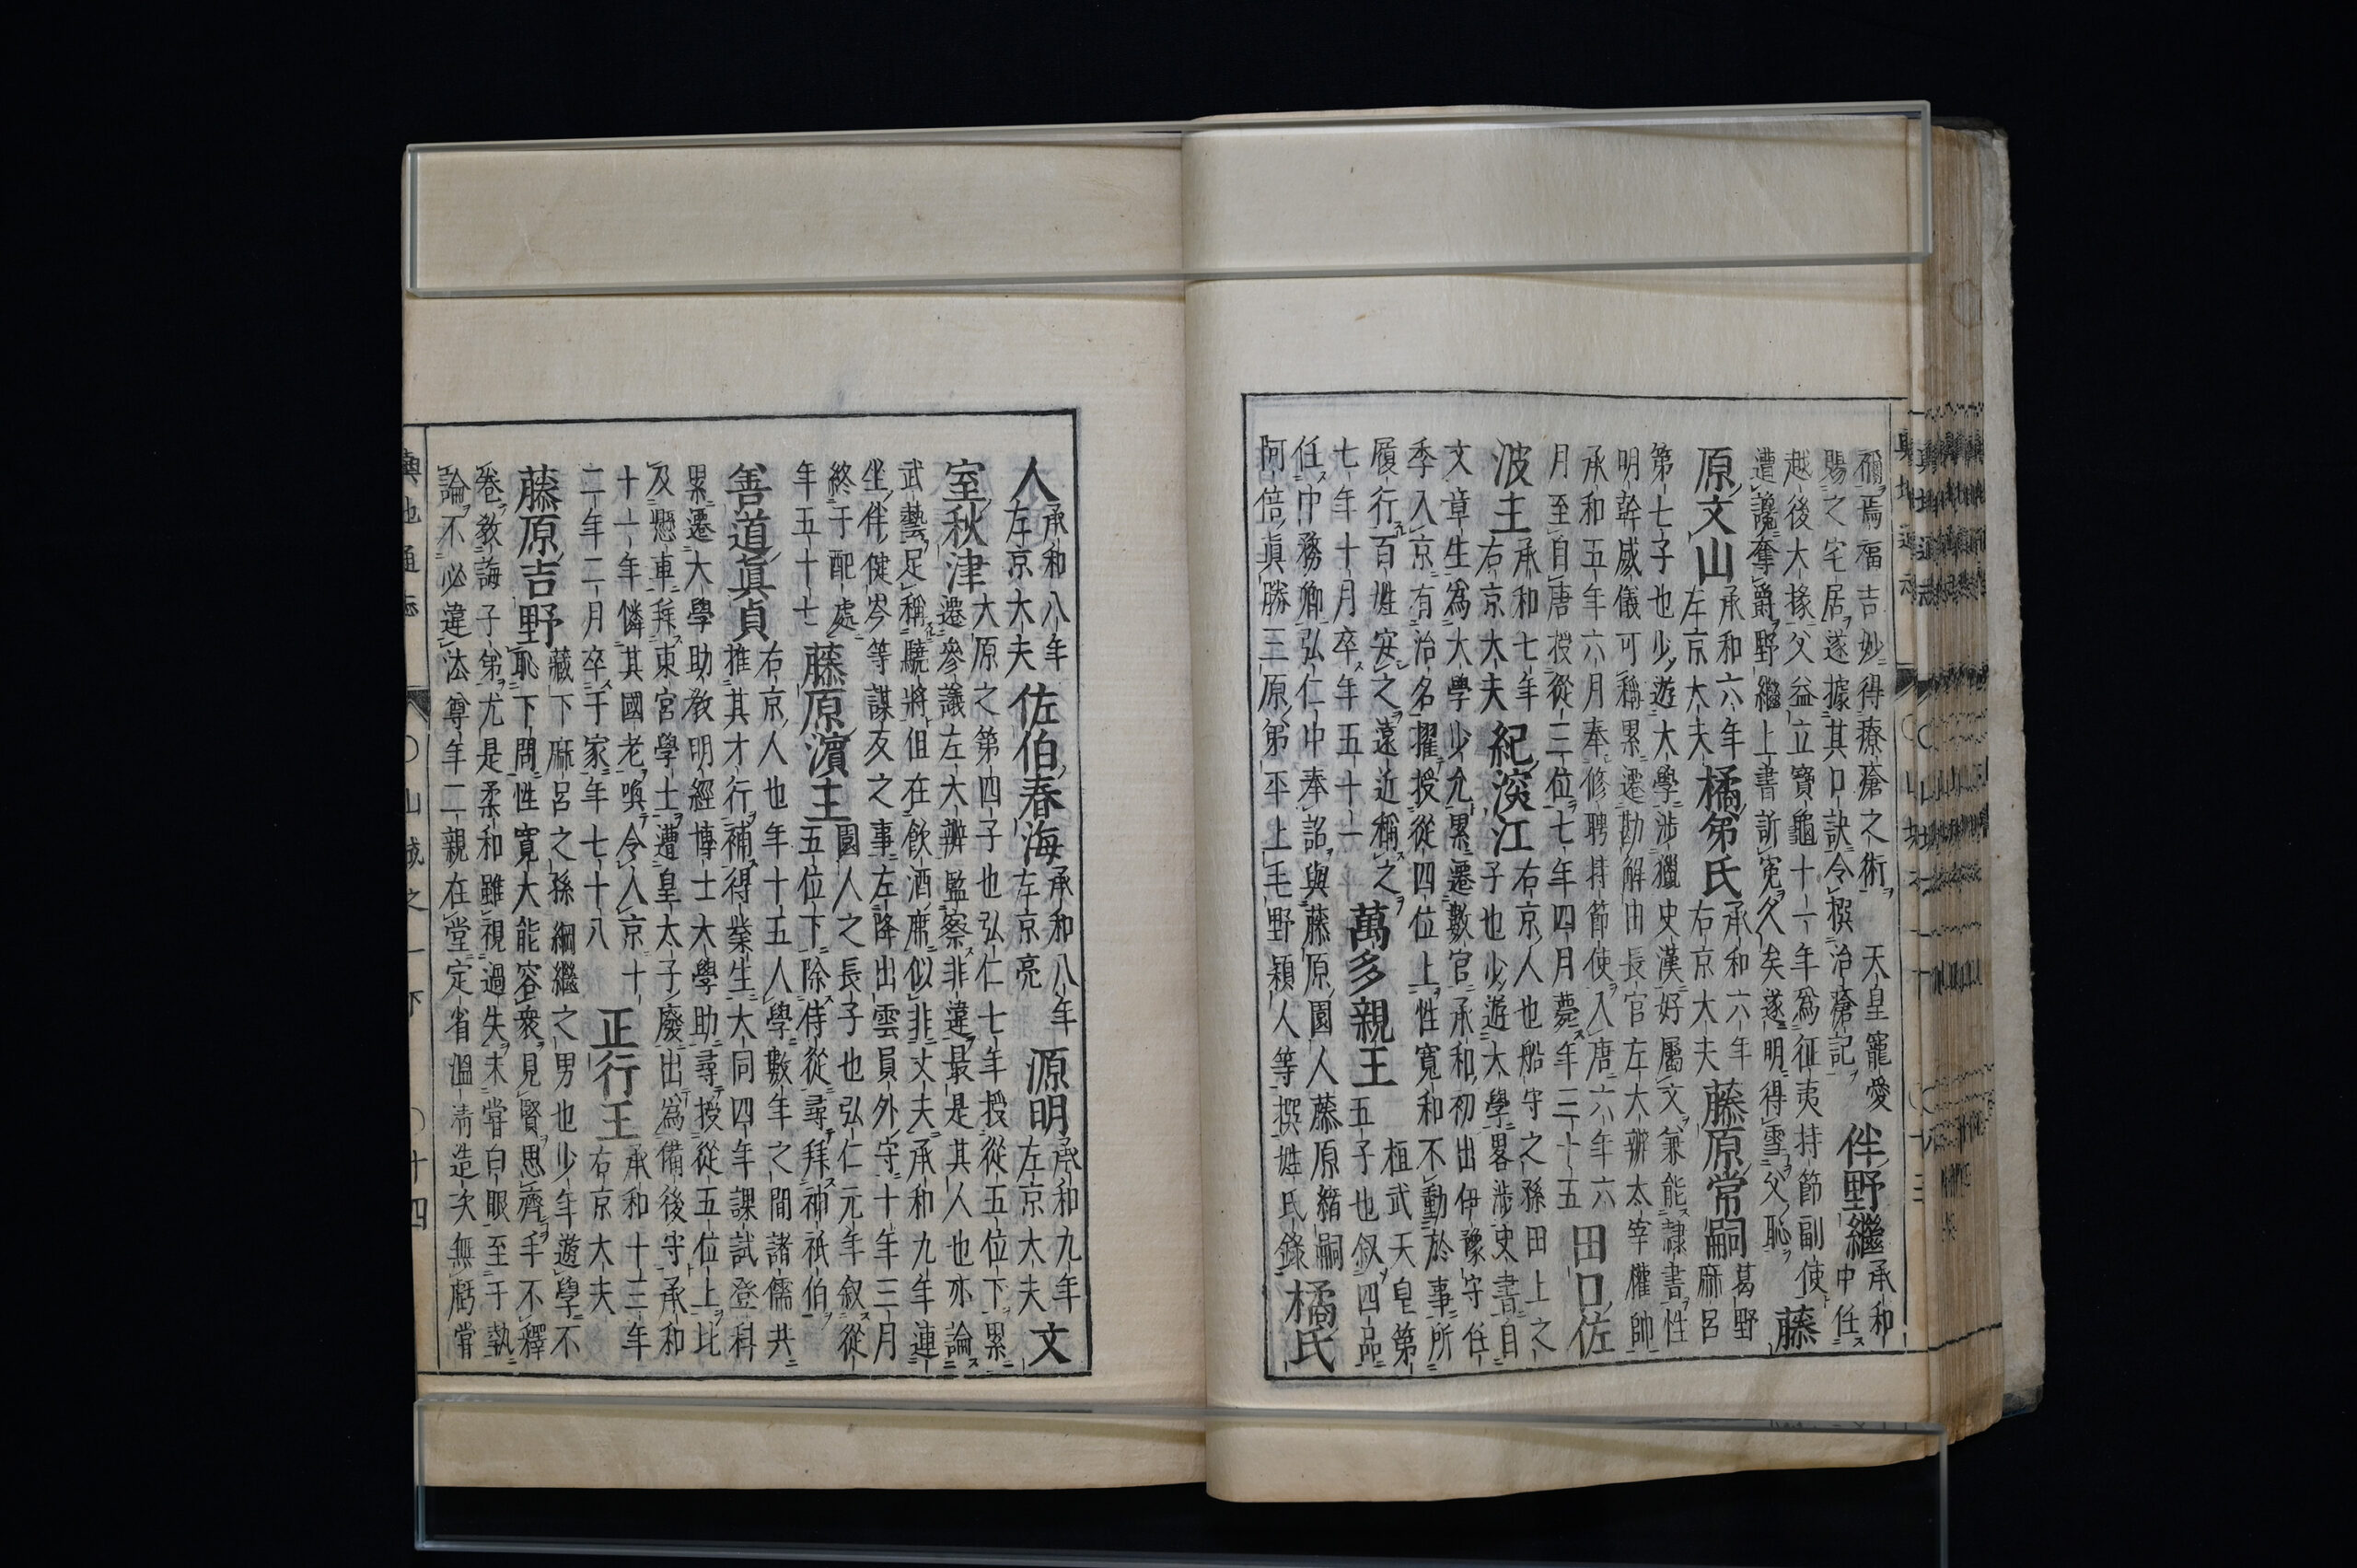 禰焉福吉妙得療瘡之術 天皇寵愛
賜之宅居遂據其口訣令撰治瘡記
伴野繼
承和
中任
越後大掾父益立寶龜十一年為征夷持節副使
遭讒奪爵野繼上書訴寃久矣遂明得雪父恥
藤
原文山
承和六年
左京大夫
橘弟氏
承和六年
右京大夫
藤原常嗣
葛野
麻呂
第七子也少遊大學涉獵史漢好屬文兼能隷書性
明幹威儀可稱累遷勘解由長官左大辨太宰權帥
承和五年六月奉修聘持節使入唐六年六
月至自唐授從三位七年四月薨年三十五
田口佐
波主
承和七年
右京大夫
紀深江
右京人也船守之孫田上之
子也少遊大學畧涉史書自
文章生為大學少允累遷數官承和初出伊豫守任
季入京有治名擢授從四位上性寬和不動於事所
履行百姓安之遠近稱之
七年十月卒年五十一
萬多親王
桓武天皇第
五子也叙四品
任中務卿弘仁中奉詔與藤原園人藤原緒嗣
阿倍眞勝三原弟平上毛野穎人等撰姓氏錄
橘氏
人
承和八年
左京大夫
佐伯春海
承和八年
左京亮
源明
承和九年
左京大夫
文
室秋津
大原之第四子也弘仁七年授從五位下累
遷參議左大辨監察非違最是其人也亦論
武藝足稱驍將但在飲酒席似非丈夫承和九年連
坐伴健岑等謀反之事左降出雲員外守十年三月
終于配處
年五十七
藤原濱主
園人之長子也弘仁元年叙從
五位下除侍從尋拜神祇伯
善道眞貞
右京人也年十五入學數年之間諸儒共
推其才行補得業生大同四年課試登科
累遷大學助教明經博士大學助尋授從五位上比
及懸車拜東宮學士遭皇太子廢出為備後守承和
十一年憐其國老喚令入京十
二年二月卒于家年七十八
正行王
承和十三年
右京大夫
藤原吉野
藏下麻呂之孫綱繼之男也少年遊學不
恥下問性寬大能容衆見賢思齊手不釋
卷教誨子弟尤是柔和雖視過失未嘗白眼至于執
論不必違法尊年二親在堂定省溫清造次無虧嘗
輿地通志 ○山城之一下 ○十四